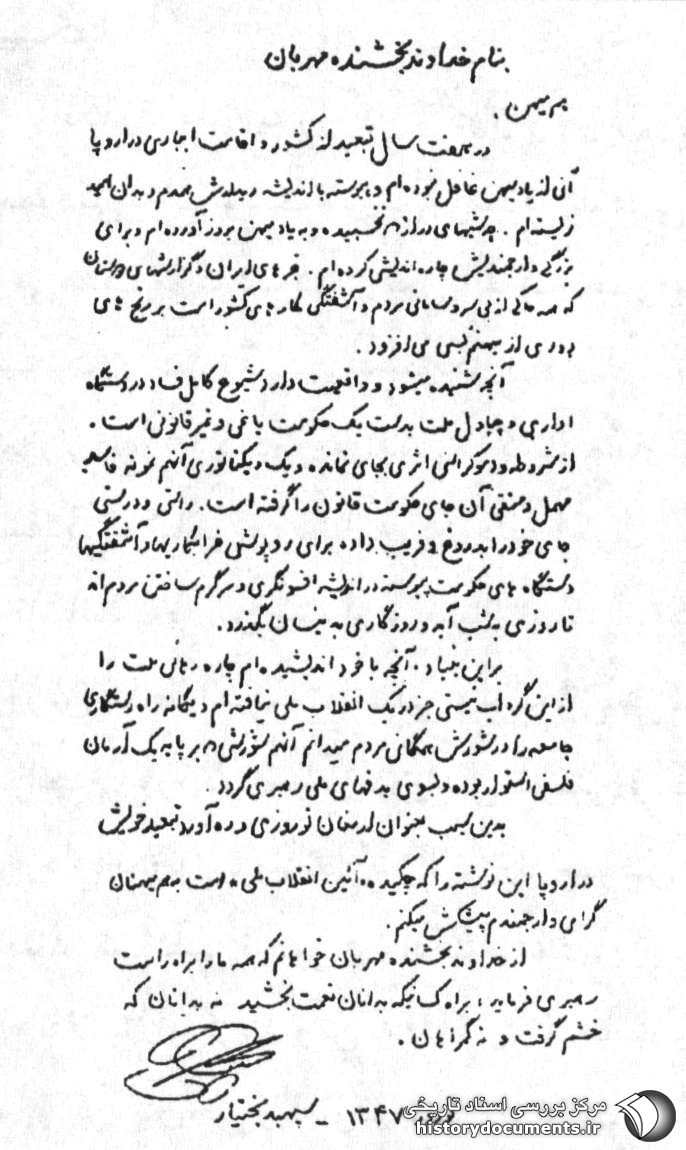 بنام خداوند بخشنده مهربان
هم میهن .
در هفت سال تبعید از کشور و اقامت اجباری در اروپا
آنی از یاد میهن غافل نبوده ام و پیوسته با اندیشه و یادش همدم و بدان امید
زیسته ام . چه شبهای دراز نخسبیده و به یاد میهن بروز آورده ام و برای
بزرگی و ارجمندیش چاره اندیشی کرده ام . خبرهای ایران و گزارشهای هم میهنان
که همه حاکی از بی سر و سامانی مردم و آشفتگی کارهای کشور است بر رنج های
دوری از میهنم بسی می افزود .
آنچه شنیده میشود و واقعیت دارد شیوع کامل فساد در دستگاه
اداری و چپاول ملت بدست یک حکومت یاغی و غیر قانونی است .
از مشروطه و دموکراسی اثری بجای نمانده و یک دیکتاتوری آنهم نمونه فاسد
مهمل و منفی آن جای حکومت قانون را گرفته است . راستی و درستی
جای خود را بدروغ و فریب داده برای رو پوشی خرابکاریها و آشفتگیها
دستگاه های حکومت پیوسته در اندیشه افسونگری و سرگرم ساختن مردم اند
تا روزی به شب آید و روزگاری به میان بگذرد .
بر این بنیاد ، آنچه با خود اندیشیده ام چاره رهائی ملت را
از این گرداب نیستی جز در یک انقلاب ملی نیافته ام و یگانه راه رستگاری
جامعه را در شورش همگانی مردم میدانم آنهم شورشی که بر پایه یک آرمان
فلسفی استوار بوده و بسوی هدفهای ملی رهبری گردد .
بدین سبب بعنوان ارمغان نوروزی و ره آورد تبعید خویش
در اروپا این نوشته را که چکیده « آئین انقلاب ملی » است به هم میهنان
گرامی و ارجمندم پیشکش میکنم .
از خداوند بخشنده مهربان خواهانم که همه ما را براه راست
رهبری فرماید ، براه کسانیکه بدانان نعمت بخشید نه بدانان که
خشم گرفت و نه گمراهان .
۱۳۴۷ - سپهبد بختیار
مرکز بررسی اسناد تاریخی
historydocuments.ir